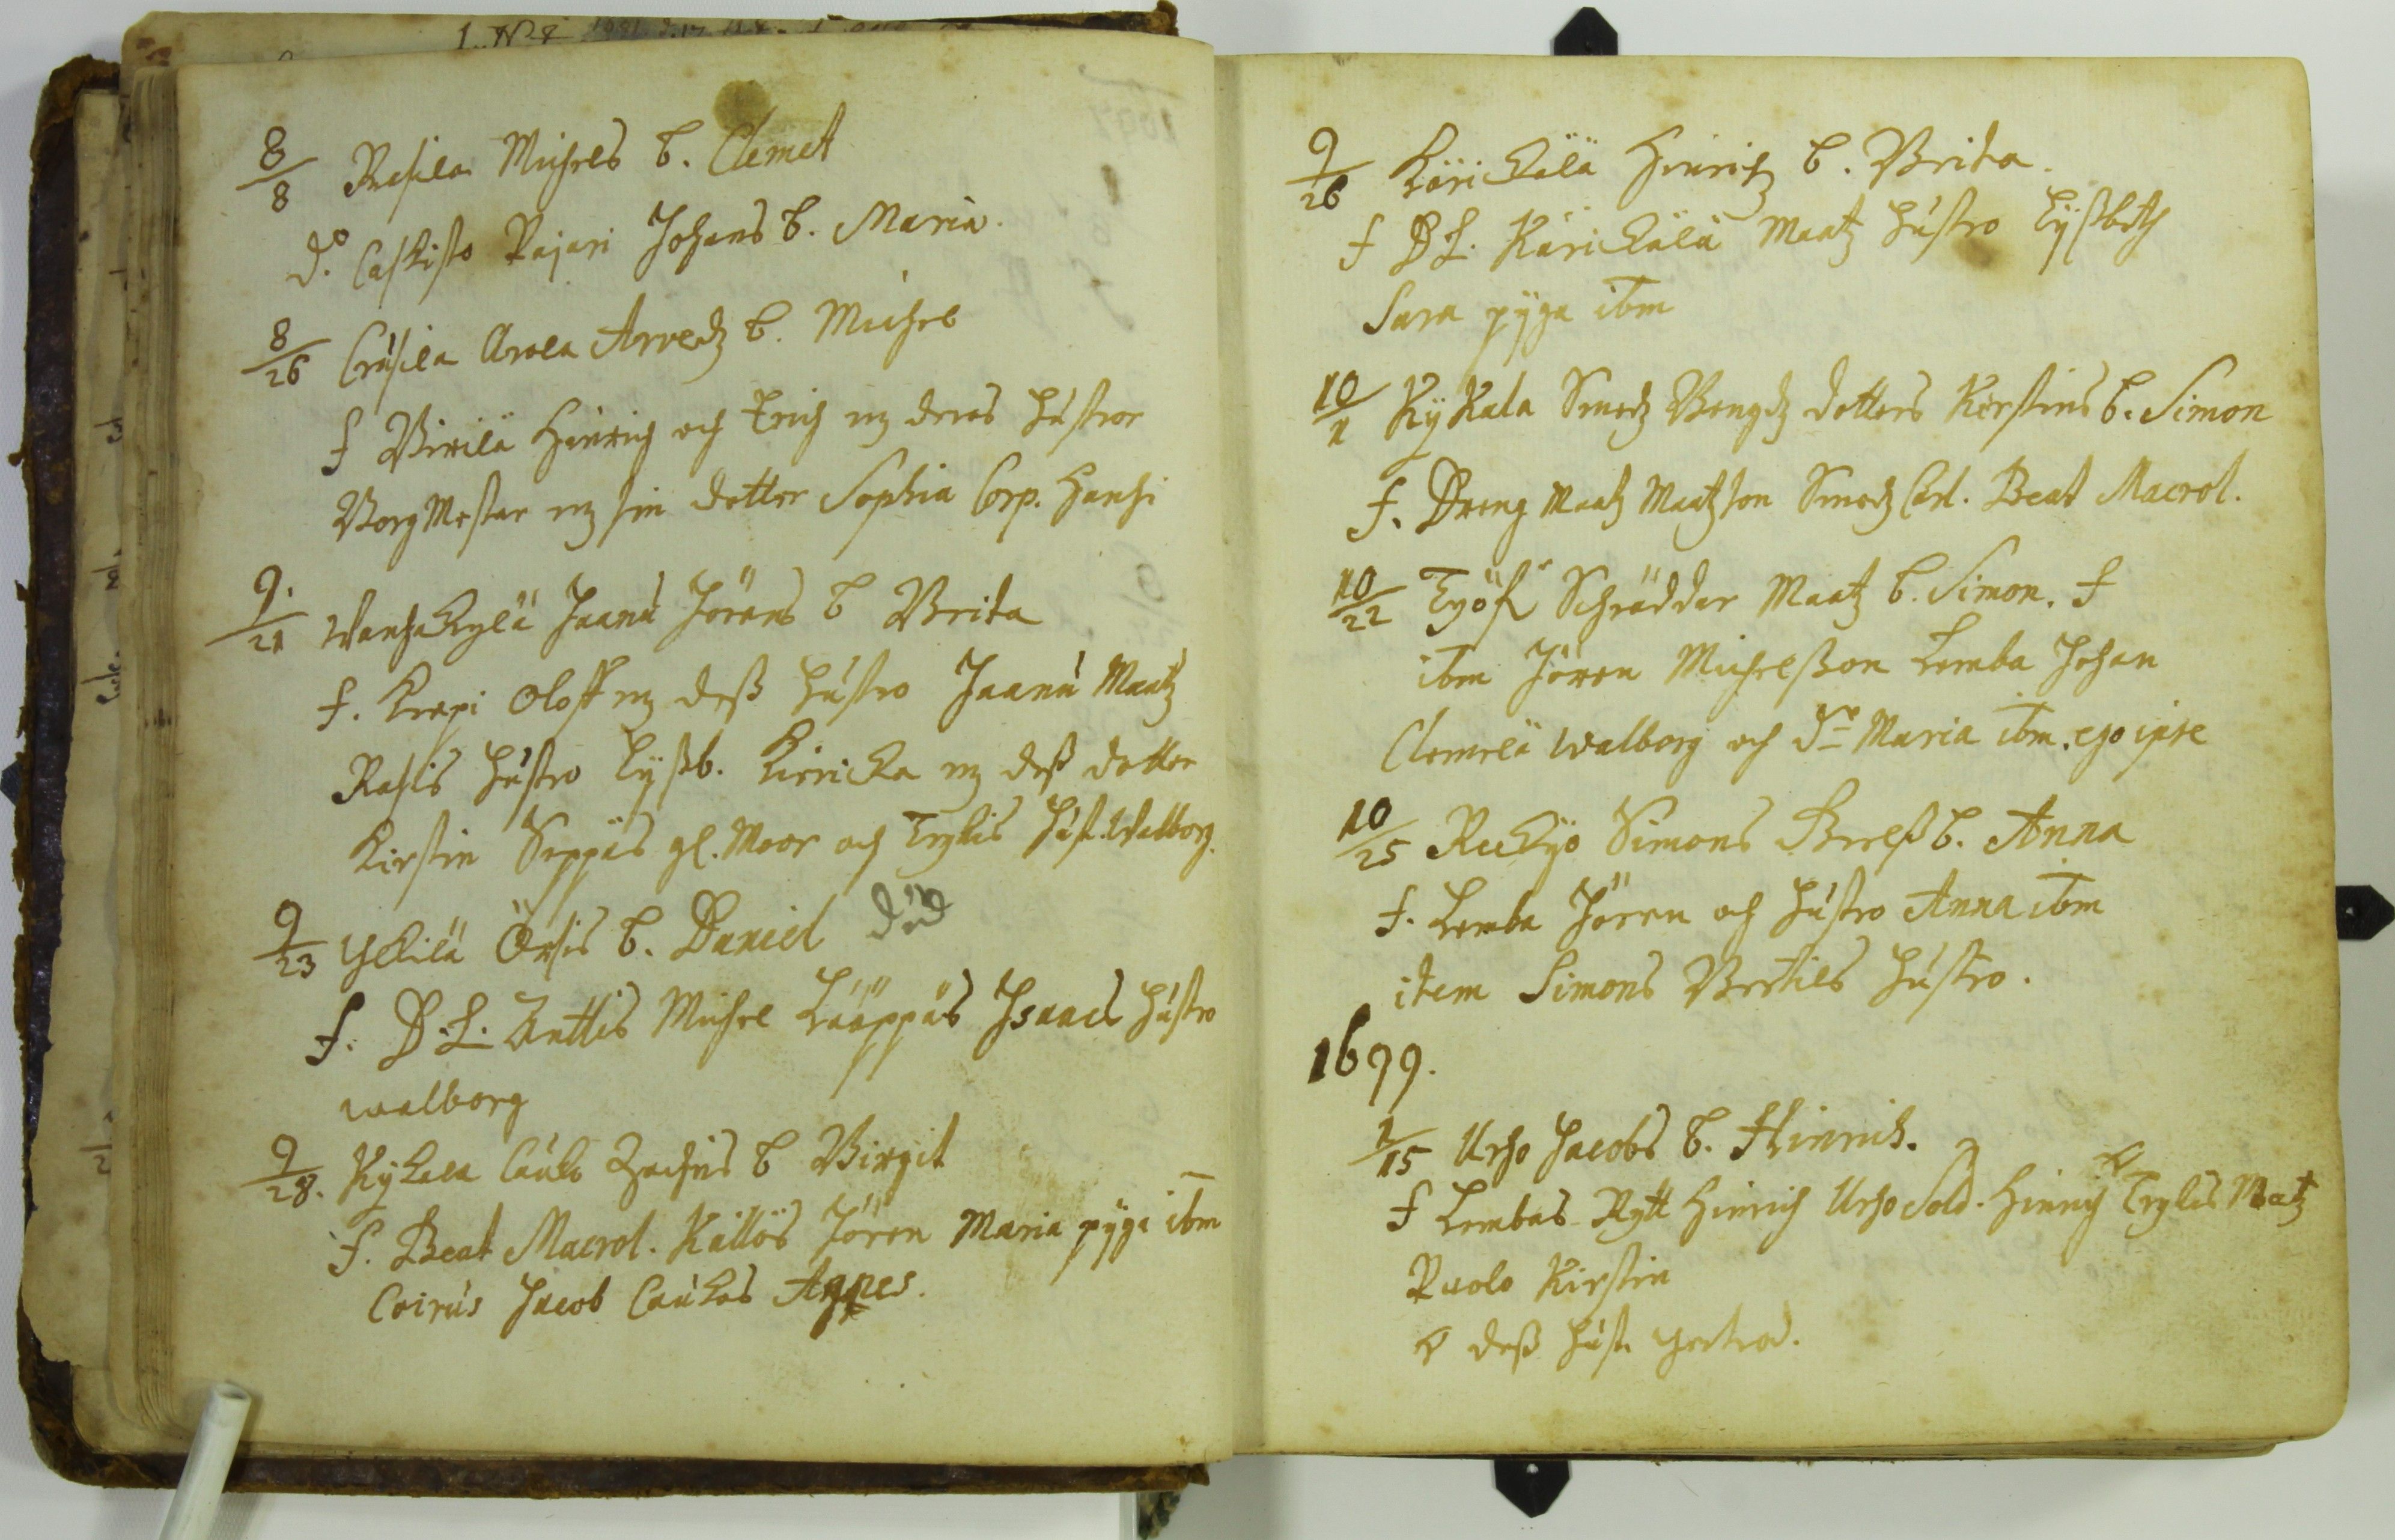 8/8 Rasila Michels b. Clemet
do Caskisto Rajari Johans b. Maria.
8/26 Crusila Arvela Arvedz b. Michel
f Virilä Hinrich och Erich mz deras hustror
BorgMestar mz sin dotter Sophia Corp. Hanssi
9./21 Wanhakylä Jaanu Jörans b Brita
f. Krepi Oloff mz dess hustro Jaanu Maatz
Rasis hustro Lyssb. Kiericka mz dess dotter
Kirstin Seppäs gl. Moor och Erykis hust. Walborg.
9/23 Yllilä Örsis b. Daniel död
f. D.L. Anttis Michel Lääppäs Isaacs hustro
walborg
9/28. Kykala Cauko Zachris b Birgit
f. Beat Macrol. Källös Jören Maria pyga ibm
Coirus Jacob Caukos Agnes.
9/26 Kärickälä Hinrichz b. Brita.
f D L. Kärickälä Maatz hustro Lyssbeth
Sara pyga ibm
10/11 Kykala Smedz Bengdz dotters Kirstins b. Simon
f. Dreng Maatz Matzson Smedz Carl. Beat Macrol.
10/22 Työk Schräddar Maatz b. Simon. f
ibm Jören Michelsson Lemba Johan
Clemelä Walborg och Maria ibm. ego ipse
10/25 Reckyo Simons Brels b. Anna
f. Lemba Jören och hustro Anna ibm
item Simons Bertils hustro.
1699.
1/15 Urho Jacobs b. Hinrich.
f Lembas Rytt Hinrich Urho Sold. Hinrich Erykis Matz
Ruolo Kirstin
dess hust. gertrod.